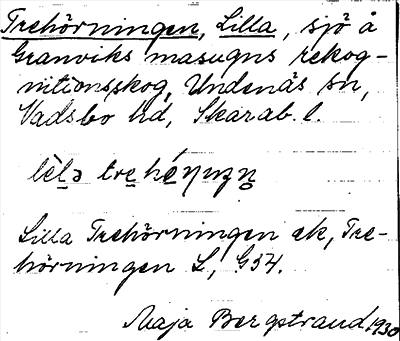 Trehörningen, Lilla, sjö å
Granviks masugns rekog-
nitionsskog, Undenäs sn,
Vadsbo hd, Skarab. l.
Lilla Trehörningen ek, Tre-
hörningen L, G54.
Maja Bergstrand 1930